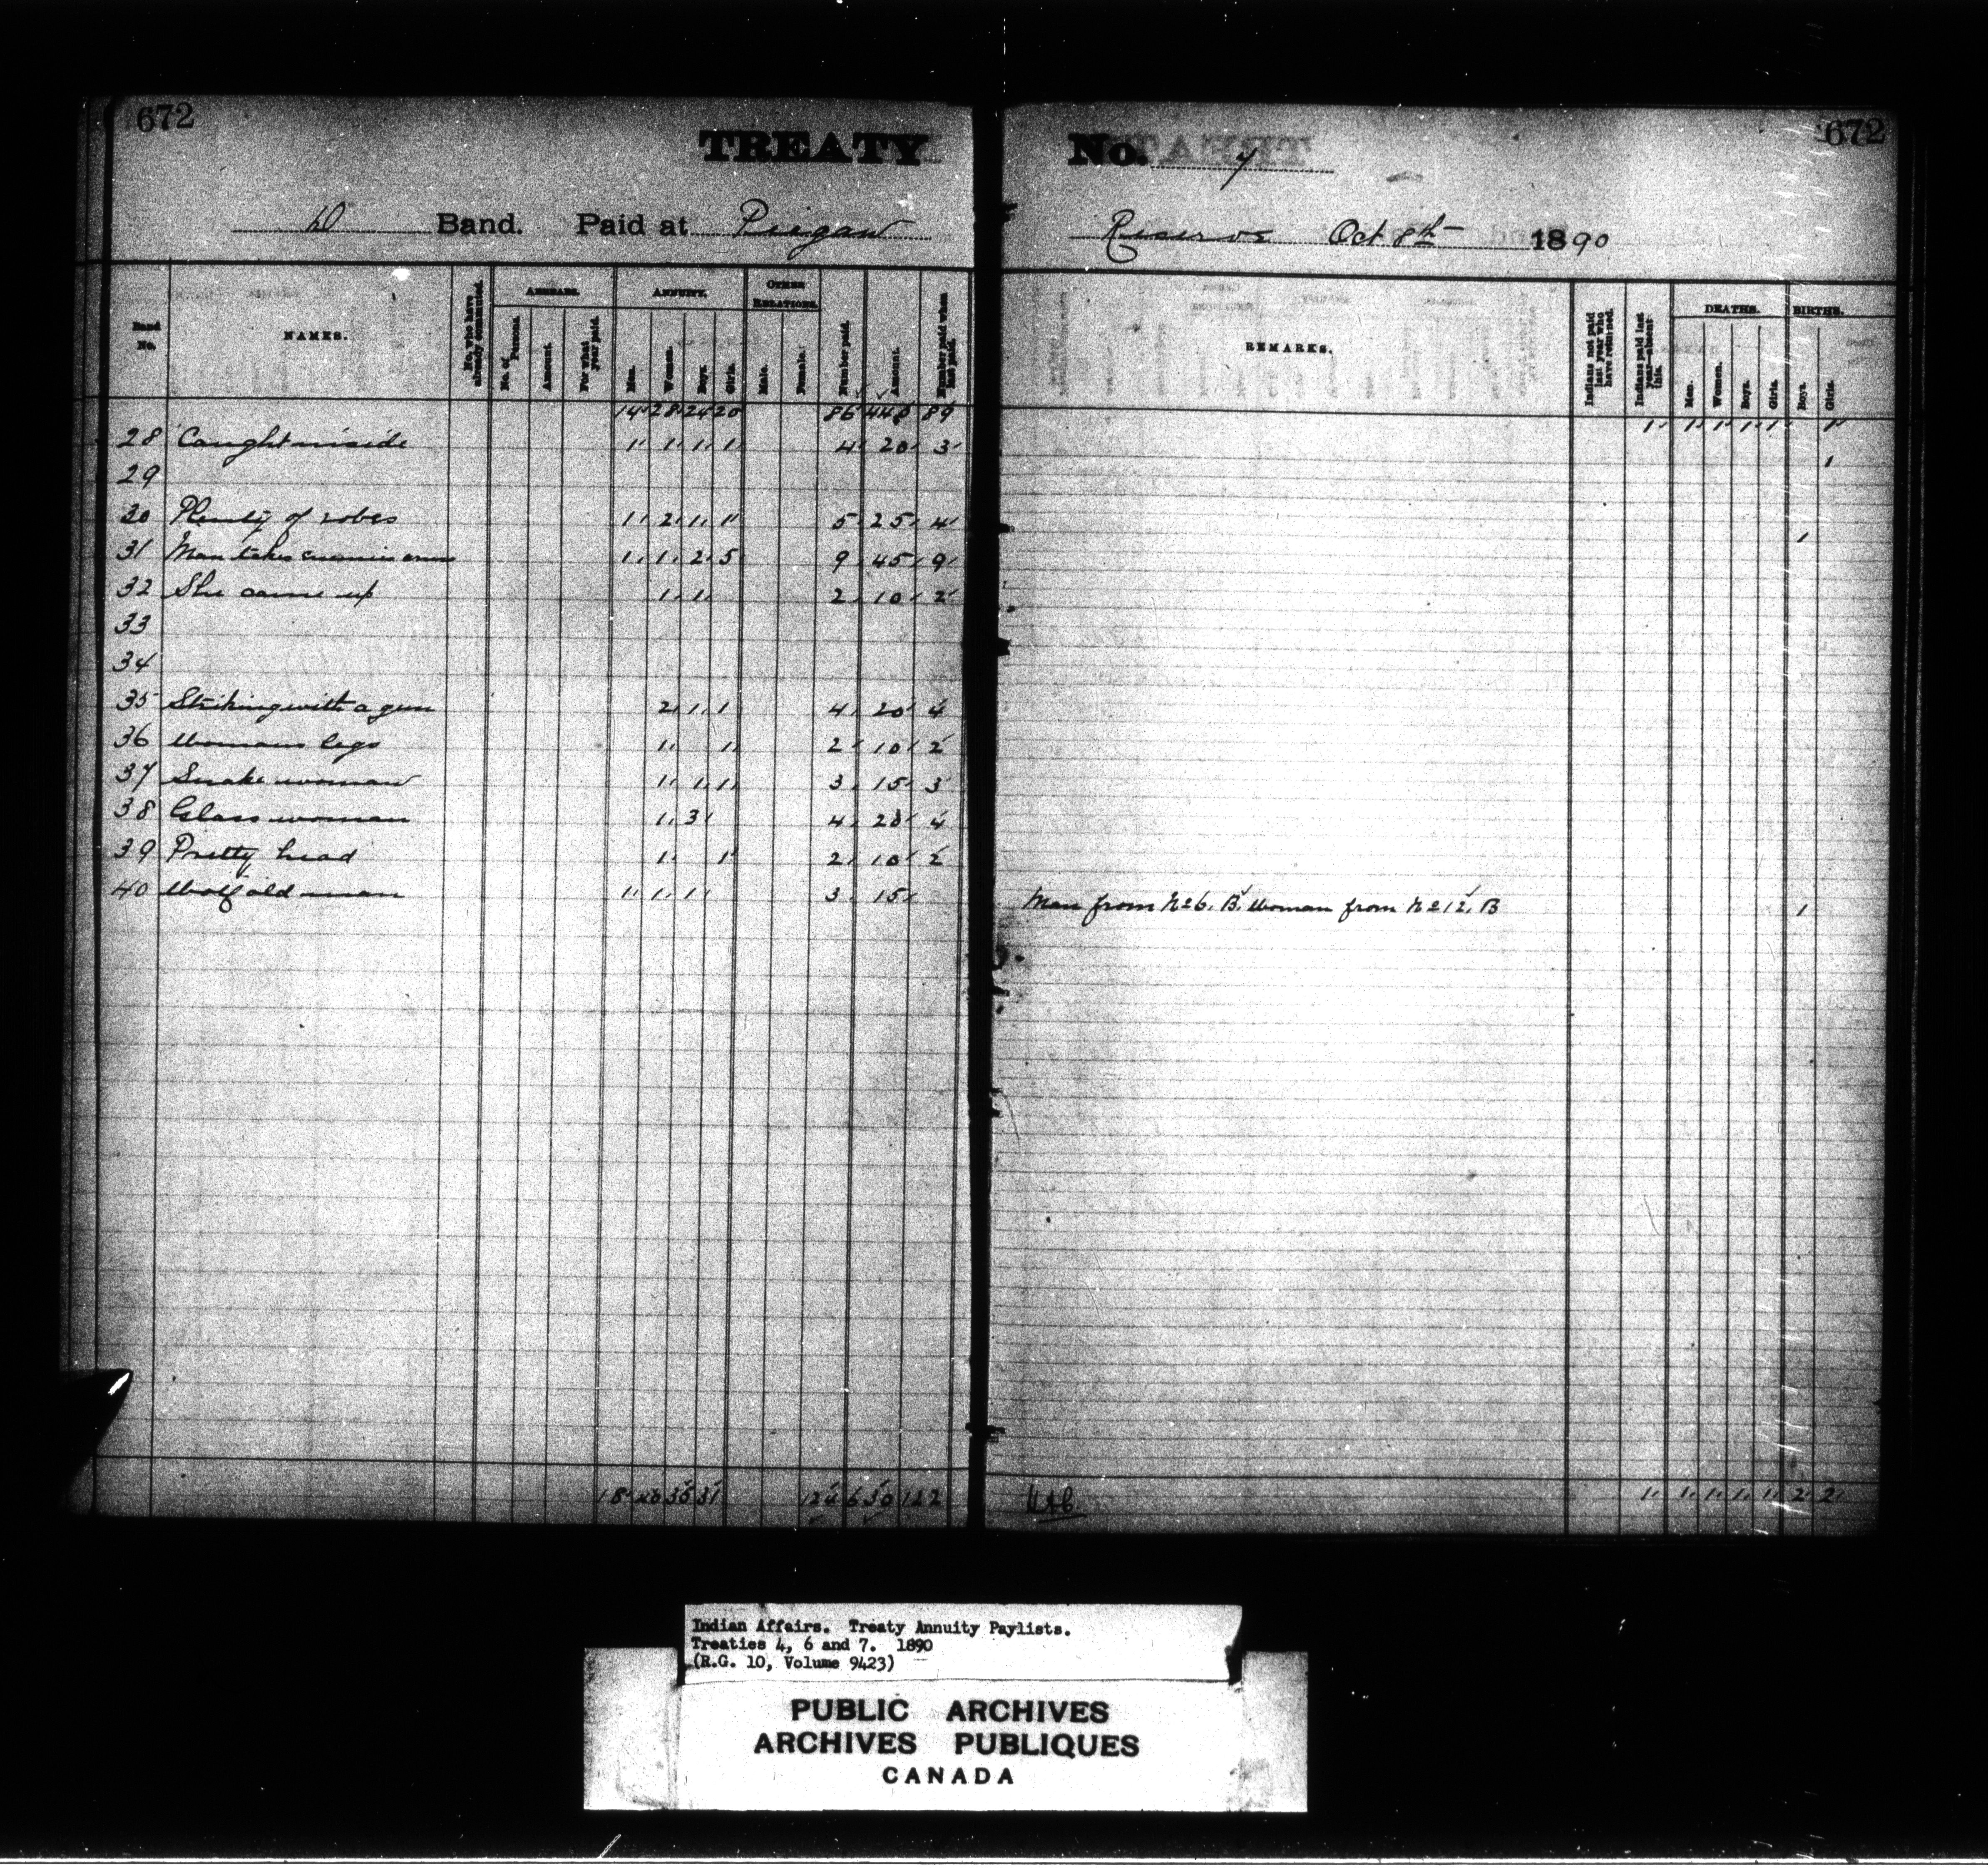 672
TREATY
D Band. Paid at Piegan
Band No.
NAMES.
No. who have already commuted.
ARREARS.
No. of Persons.
Amount.
For what year paid.
ANNUITY.
Men.
Women.
Boys.
Girls.
OTHER RELATIONS.
Male.
Female.
Number paid.
Amount.
Number paid when last paid.
14 28 24 20 86 440 89
28 Caught inside 1 1 1 1 4 20 3
29
30 Plenty of robes 1 2 1 1 5 25 4
31 Man takes enemies arms 1 1 2 5 9 45 9
32 She came up 1 1 2 10 2
33
34
35 Striking with a gun 2 1 1 4 20 4
36 Womans legs 1 1 2 10 2
37 Snake woman 1 1 1 3 15 3
38 Glass woman 1 3 4 20 4
39 Pretty head 1 1 2 10 2
40 Wolf old man 1 1 1 3 15
124 630 122
672
No. 7
Reserve Oct 8th 1890
REMARKS.
Indians not paid last year who have returned.
Indians paid last year—absent this.
DEATHS.
Men.
Women.
Boys.
Girls.
BIRTHS.
Boys.
Girls.
1 1 1 1 1 1
1
1
Man from No 6. B. Woman from No 12. B 1
1 1 1 1 1 2 2
Indian Affairs. Treaty Annuity Paylists.
Treaties 4, 6 and 7. 1890
(R.G. 10, Volume 9423)
PUBLIC ARCHIVES
ARCHIVES PUBLIQUES
CANADA